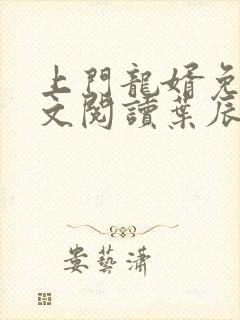 上門龍婿免
文閱讀葉辰
娄藝潇